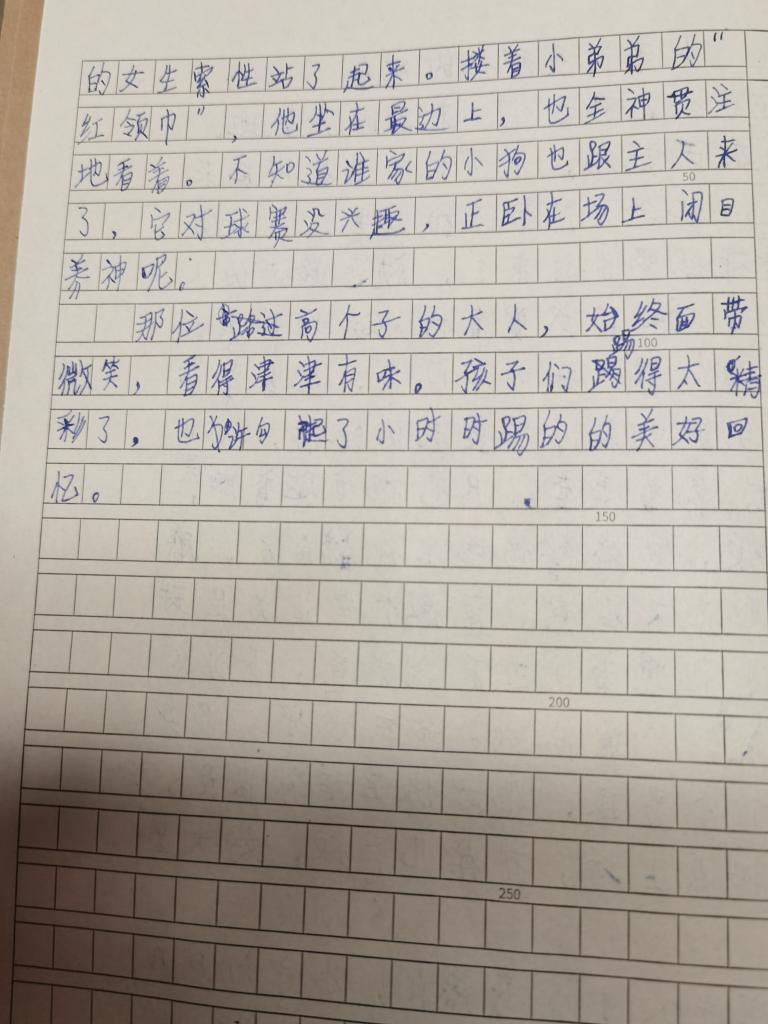 的女生索性站了起来。搂着小弟弟的“
红领巾”，他坐在最边上，也全神贯注
地看着。不知道谁家的小狗也跟主人来
50
了，它对球赛没兴趣，正卧在场上闭目
养神呢。
那位路过高个子的大人，始终面带
100
微笑，看得津津有味。孩子们踢得太精
彩了，也许勾起了小时时踢的的美好回
忆。
150
200
250